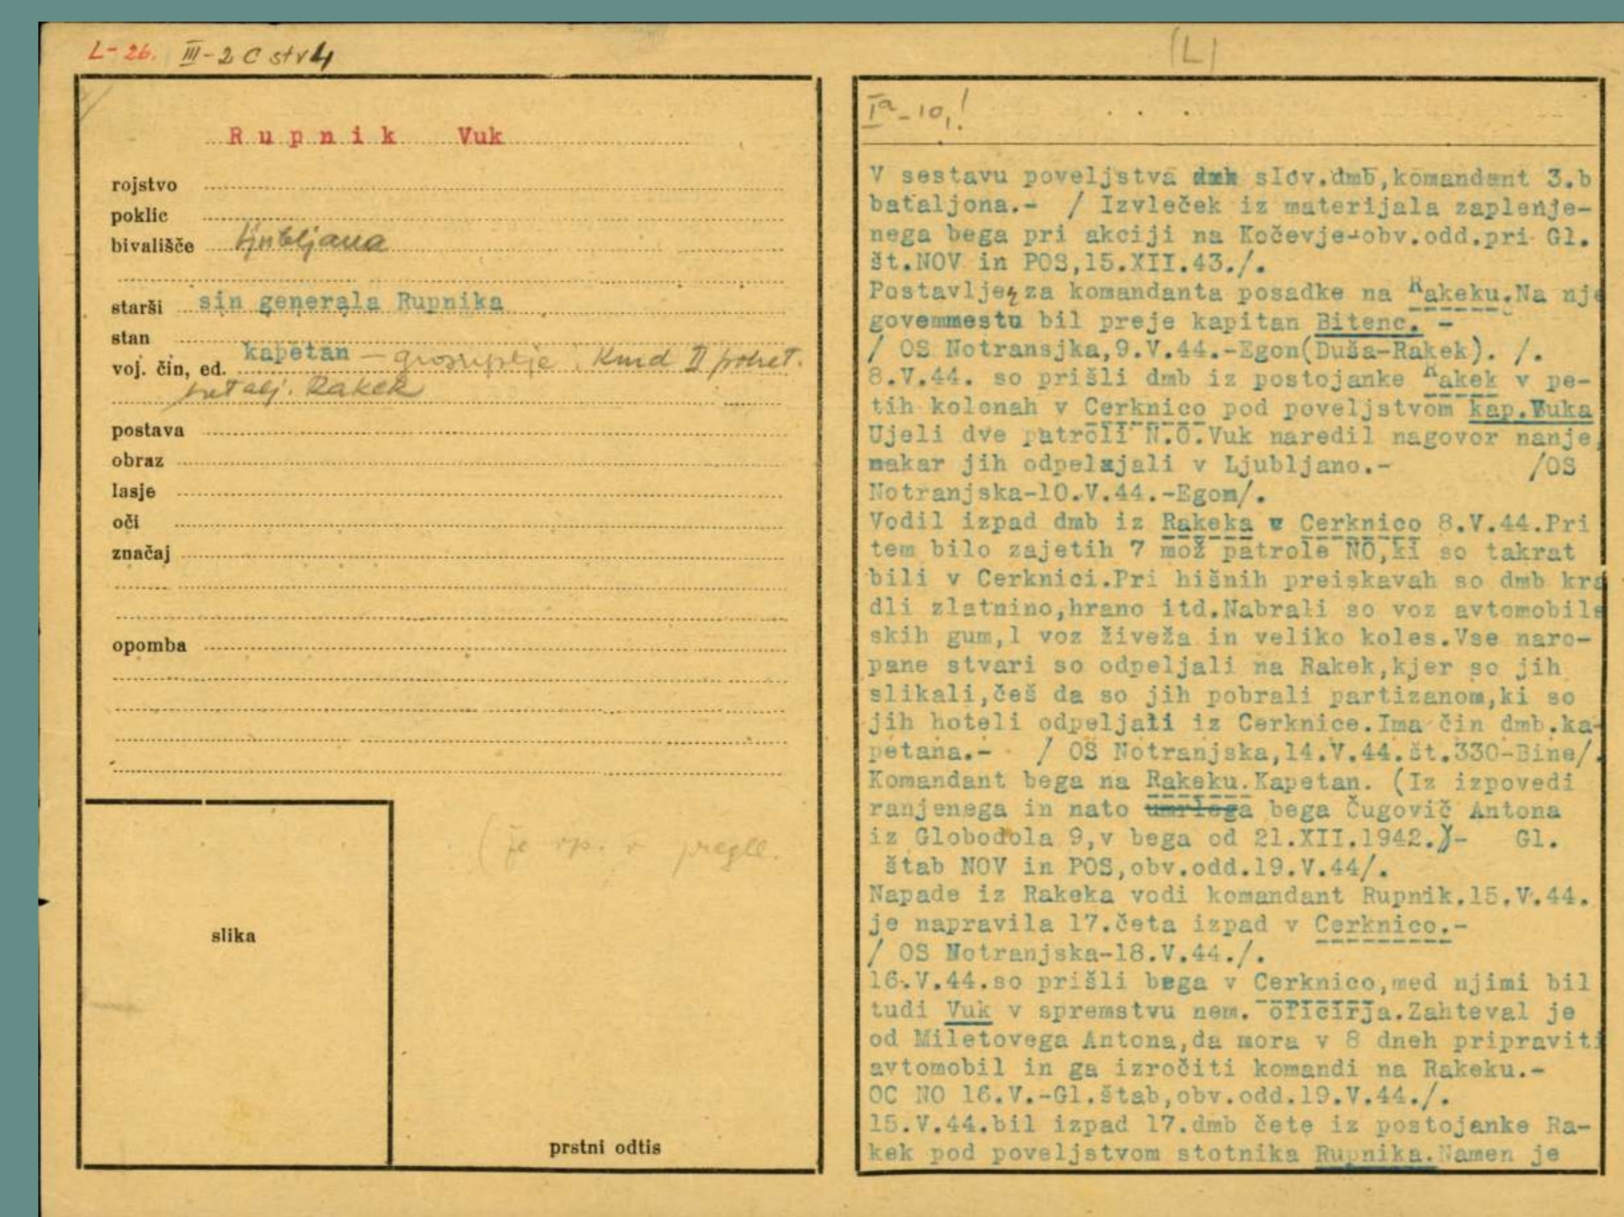 L-26. III-2 C str 4
R u p n i k Vuk
rojstvo
poklic
bivališče Ljubljana
starši sin generala Rupnika
stan
voj. čin, ed. kapetan - grosuplje. Kmd II
Rakek
postava
obraz
lasje
oči
značaj
opomba
slika
prstni odtis
(L)
Ia-10,!
V sestavu poveljstva dmb slov.dmb,komandant 3.b
bataljona.- / Izvleček iz materijala zaplenje-
nega bega pri akciji na Kočevje-obv.odd.pri Gl.
št.NOV in POS,15.XII.43./.
Postavljen za komandanta posadke na Rakeku.Na nje
govemmestu bil preje kapitan Bitenc. -
/ OS Notransjka,9.V.44.-Egon(Duša-Rakek). /.
8.V.44. so prišli dmb iz postojanke Rakek v pe-
tih kolonah v Cerknico pod poveljstvom kap.Vuka
Ujeli dve patroli N.O.Vuk naredil nagovor nanje,
nakar jih odpelajali v Ljubljano.- /OS
Notranjska-10.V.44.-Egon/.
Vodil izpad dmb iz Rakeka v Cerknico 8.V.44.Pri
tem bilo zajetih 7 mož patrole NO,ki so takrat
bili v Cerknici.Pri hišnih preiskavah so dmb kra
dli zlatnino,hrano itd.Nabrali so voz avtomobils
skih gum,1 voz živeža in veliko koles.Vse naro-
pane stvari so odpeljali na Rakek,kjer so jih
slikali,češ da so jih pobrali partizanom,ki so
jih hoteli odpeljati iz Cerknice.Ima čin dmb.ka-
petana.- / OS Notranjska,14.V.44.št.330-Bine/.
Komandant bega na Rakeku.Kapetan. (Iz izpovedi
ranjenega in nato umrlega bega Čugovič Antona
iz Globodola 9,v bega od 21.XII.1942.)- Gl.
štab NOV in POS,obv.odd.19.V.44/.
Napade iz Rakeka vodi komandant Rupnik.15.V.44.
je napravila 17.četa izpad v Cerknico.-
/ OS Notranjska-18.V.44./.
16.V.44.so prišli bega v Cerknico,med njimi bil
tudi Vuk v spremstvu nem. oficirja.Zahteval je
od Miletovega Antona,da mora v 8 dneh pripraviti
avtomobil in ga izročiti komandi na Rakeku.-
OC NO 16.V.-Gl.štab,obv.odd.19.V.44./.
15.V.44.bil izpad 17.dmb čete iz postojanke Ra-
kek pod poveljstvom stotnika Rupnika.Namen je